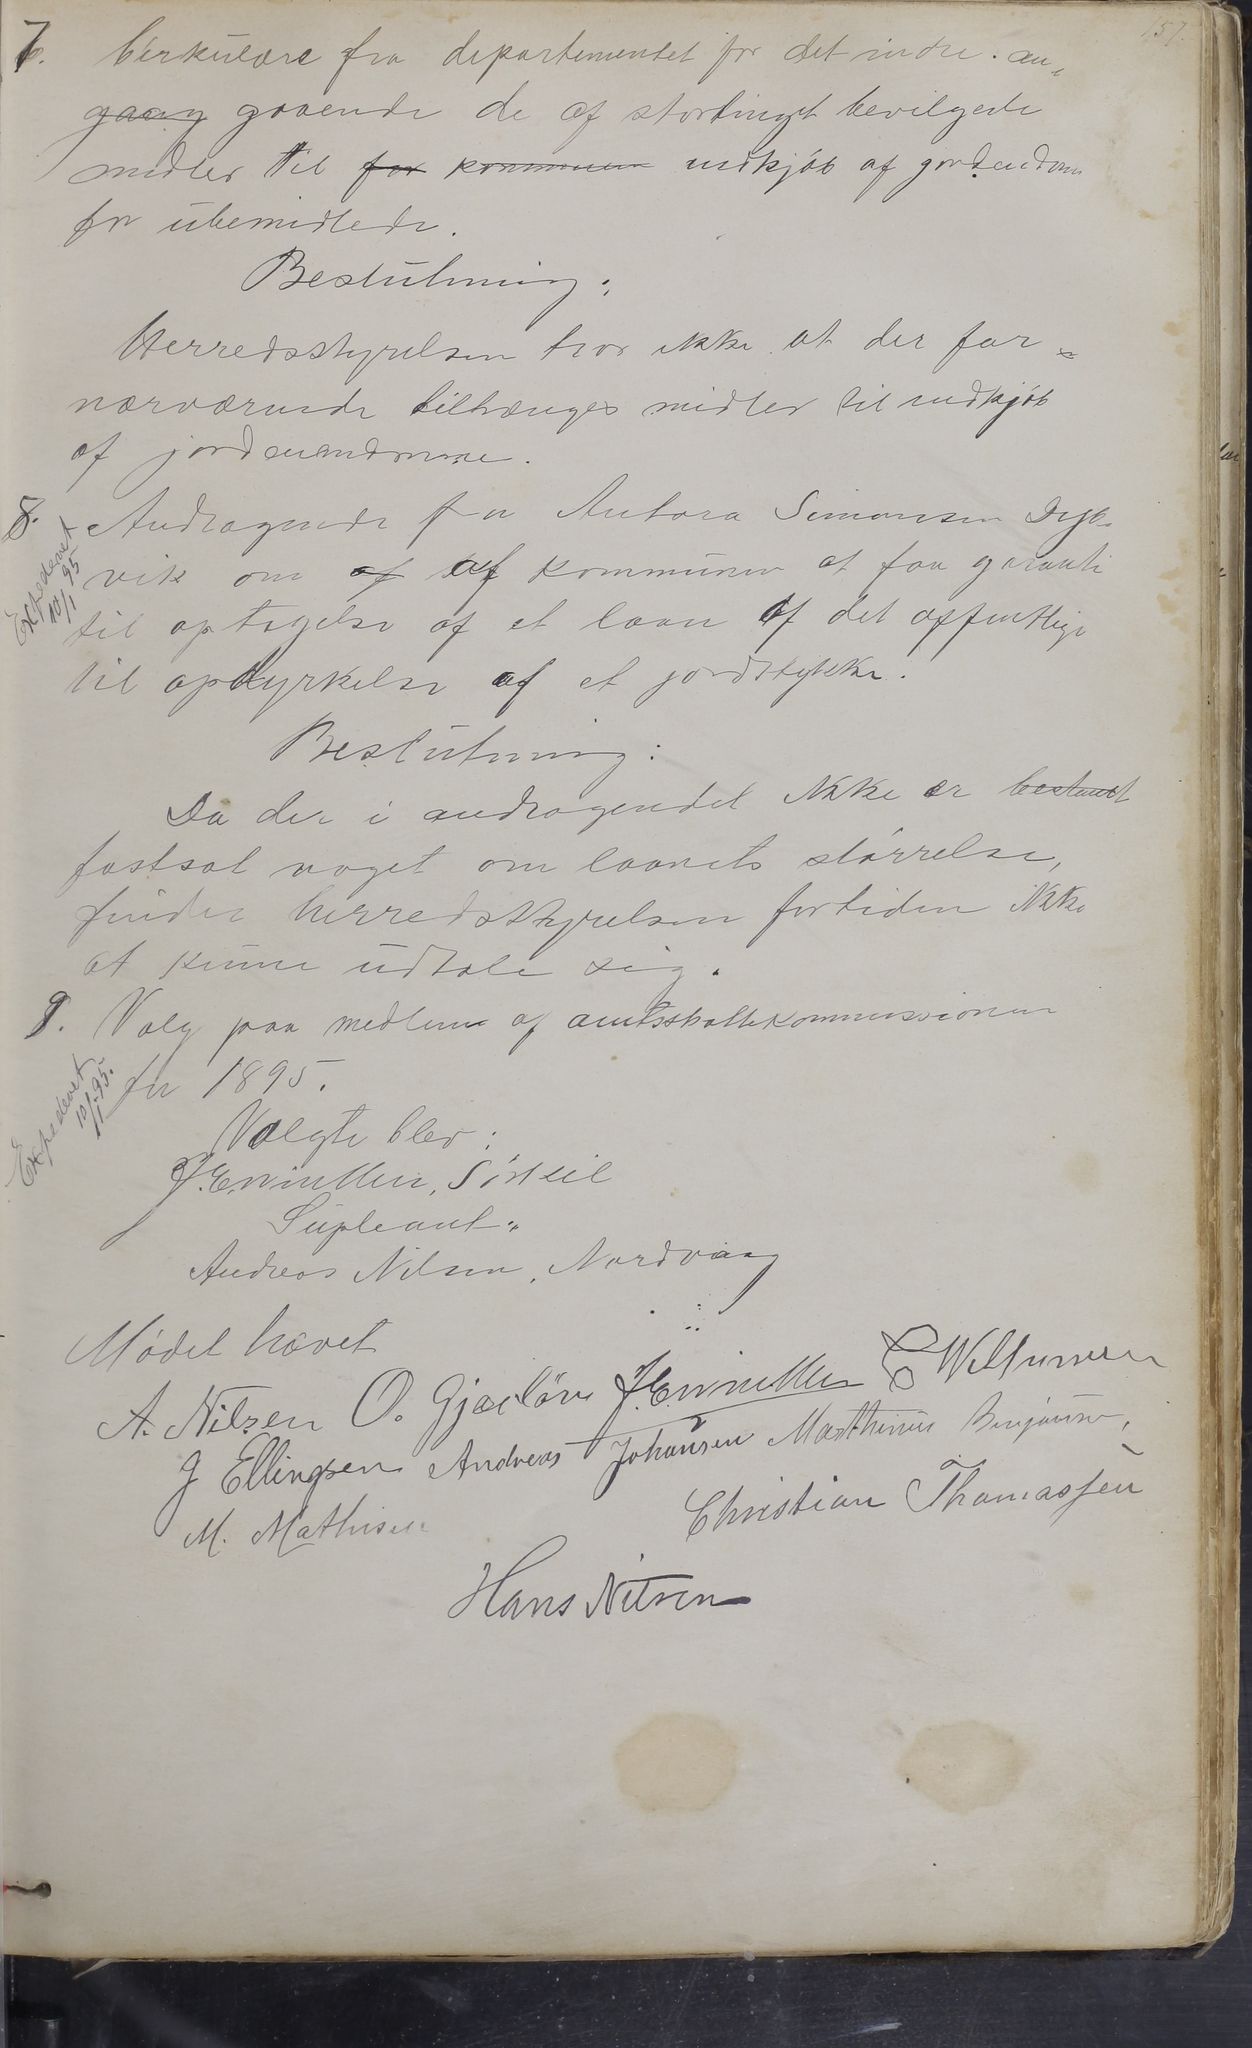 157.
7. Cirkulære fra departementet for det indre. an„
gaang gaaende de af stortinget bevilgede
midler til for kommunen indkjøb af jordendom
for ubemidlede.
Beslutning:
Herredsstyrelsen tror ikke at der for„
nærværende tiltrænges midler til indkjøb
af jordeiendomme.
8. Andragende fra Antora Simonsen Dyb„
vik om af af kommunen at faa garanti
til optagelse af et laan af det offentlige
til opdyrkelse af et jordstykke.
Expederet
10/1 95
Beslutning:
Da der i andragendet ikke er bestemt
fastsat noget om laanets størrelse,
finder herredsstyrelsen fortiden ikke
at kunne udtale sig.
9. Valg paa medlem af amtsskattekommissionen
for 1895.
Expederet
10/1 95.
Valgte blev:
Supleant„
Andreas Nilsen, Nordvaag
Mødet hævet
A. Nilsen O. Gjæsløw
J Ellingsen Andreas Johansen Marthinus Benjaminsen,
M. Mathisen Christian Thomassen
Hans Nilsen